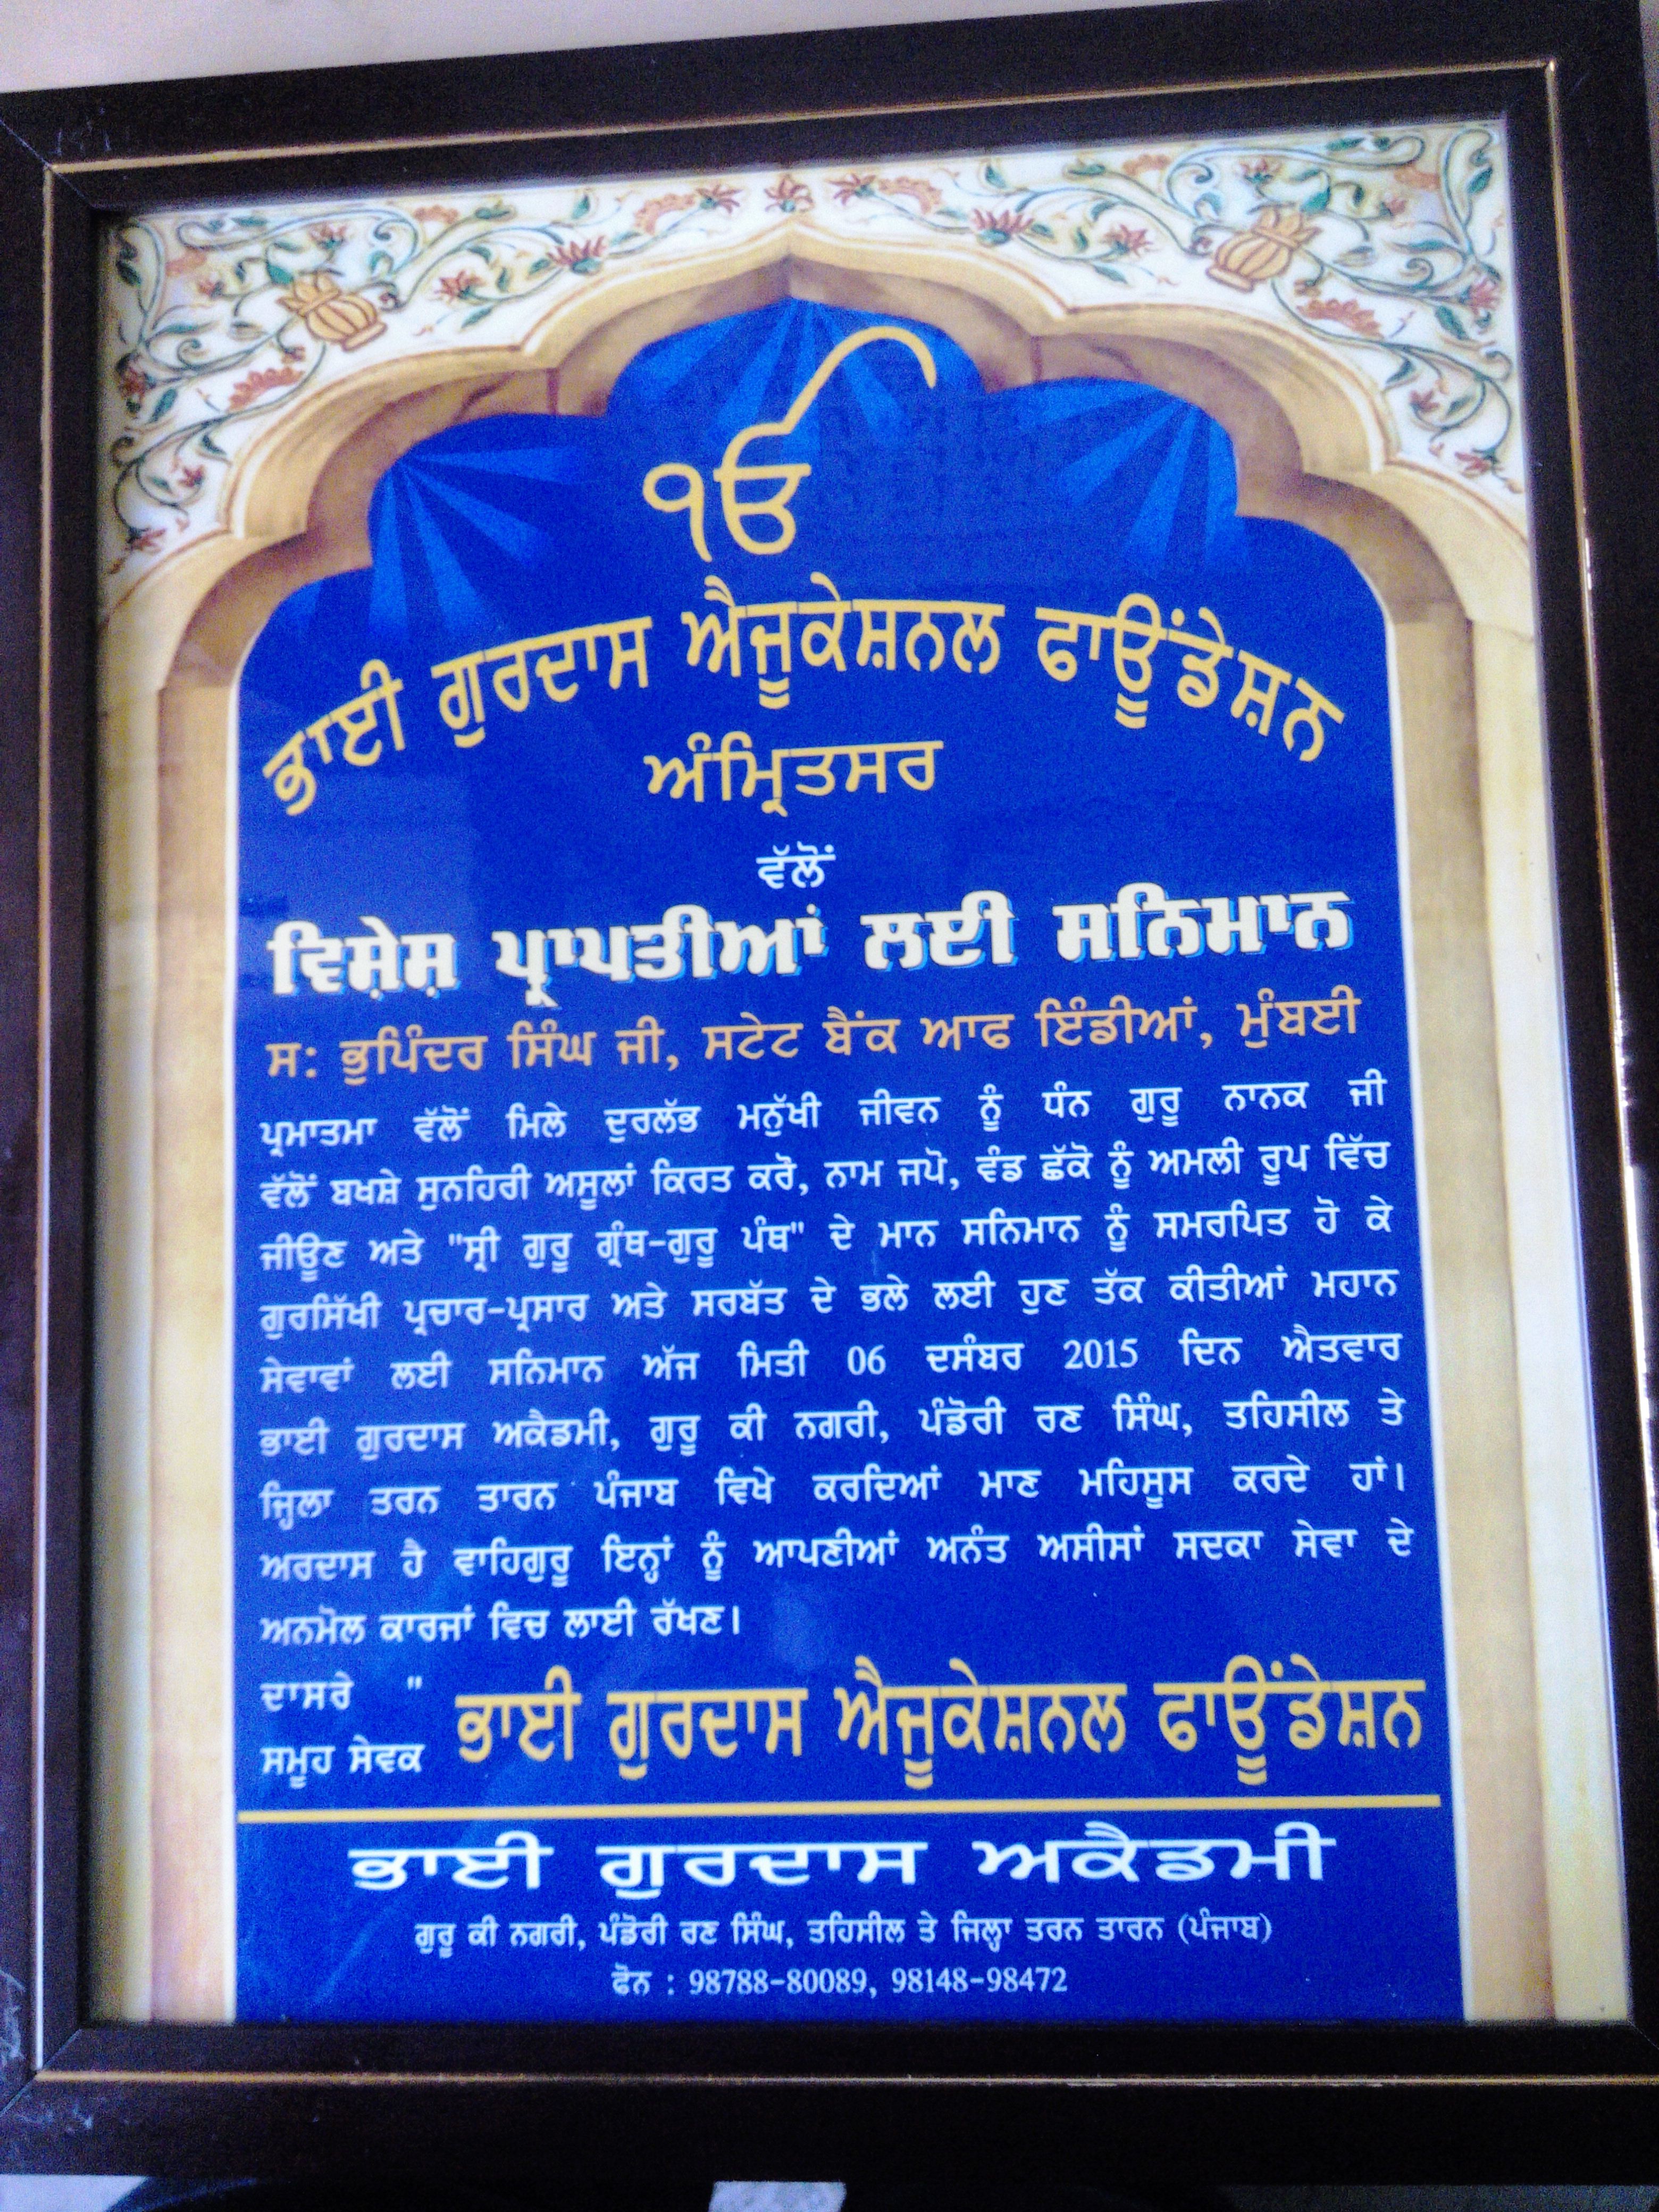 ੴ
ਭਾਈ ਗੁਰਦਾਸ ਐਜੂਕੇਸ਼ਨਲ ਫਾਊਂਡੇਸ਼ਨ
ਅੰਮ੍ਰਿਤਸਰ
ਵੱਲੋਂ
ਵਿਸ਼ੇਸ਼ ਪ੍ਰਾਪਤੀਆਂ ਲਈ ਸਨਿਮਾਨ
ਸ: ਭੁਪਿੰਦਰ ਸਿੰਘ ਜੀ, ਸਟੇਟ ਬੈਂਕ ਆਫ ਇੰਡੀਆਂ, ਮੁੰਬਈ
ਪ੍ਰਮਾਤਮਾ ਵੱਲੋਂ ਮਿਲੇ ਦੁਰਲੱਭ ਮਨੁੱਖੀ ਜੀਵਨ ਨੂੰ ਧੰਨ ਗੁਰੂ ਨਾਨਕ ਜੀ
ਵੱਲੋਂ ਬਖਸ਼ੇ ਸੁਨਹਿਰੀ ਅਸੂਲਾਂ ਕਿਰਤ ਕਰੋ, ਨਾਮ ਜਪੋ, ਵੰਡ ਛੱਕੋ ਨੂੰ ਅਮਲੀ ਰੂਪ ਵਿੱਚ
ਜੀਊਣ ਅਤੇ "ਸ੍ਰੀ ਗੁਰੂ ਗ੍ਰੰਥ-ਗੁਰੂ ਪੰਥ" ਦੇ ਮਾਨ ਸਨਿਮਾਨ ਨੂੰ ਸਮਰਪਿਤ ਹੋ ਕੇ
ਗੁਰਸਿੱਖੀ ਪ੍ਰਚਾਰ-ਪ੍ਰਸਾਰ ਅਤੇ ਸਰਬੱਤ ਦੇ ਭਲੇ ਲਈ ਹੁਣ ਤੱਕ ਕੀਤੀਆਂ ਮਹਾਨ
ਸੇਵਾਵਾਂ ਲਈ ਸਨਿਮਾਨ ਅੱਜ ਮਿਤੀ 06 ਦਸੰਬਰ 2015 ਦਿਨ ਐਤਵਾਰ
ਭਾਈ ਗੁਰਦਾਸ ਅਕੈਡਮੀ, ਗੁਰੂ ਕੀ ਨਗਰੀ, ਪੰਡੋਰੀ ਰਣ ਸਿੰਘ, ਤਹਿਸੀਲ ਤੇ
ਜ੍ਹਿਲਾ ਤਰਨ ਤਾਰਨ ਪੰਜਾਬ ਵਿਖੇ ਕਰਦਿਆਂ ਮਾਣ ਮਹਿਸੂਸ ਕਰਦੇ ਹਾਂ।
ਅਰਦਾਸ ਹੈ ਵਾਹਿਗੁਰੂ ਇਨ੍ਹਾਂ ਨੂੰ ਆਪਣੀਆਂ ਅਨੰਤ ਅਸੀਸਾਂ ਸਦਕਾ ਸੇਵਾ ਦੇ
ਅਨਮੋਲ ਕਾਰਜਾਂ ਵਿਚ ਲਾਈ ਰੱਖਣ।
ਦਾਸਰੇ "
ਸਮੂਹ ਸੇਵਕ ਭਾਈ ਗੁਰਦਾਸ ਐਜੂਕੇਸ਼ਨਲ ਫਾਊਂਡੇਸ਼ਨ
ਭਾਈ ਗੁਰਦਾਸ ਅਕੈਡਮੀ
ਗੁਰੂ ਕੀ ਨਗਰੀ, ਪੰਡੋਰੀ ਰਣ ਸਿੰਘ, ਤਹਿਸੀਲ ਤੇ ਜਿਲ੍ਹਾ ਤਰਨ ਤਾਰਨ (ਪੰਜਾਬ)
ਫੋਨ : 98788-80089, 98148-98472